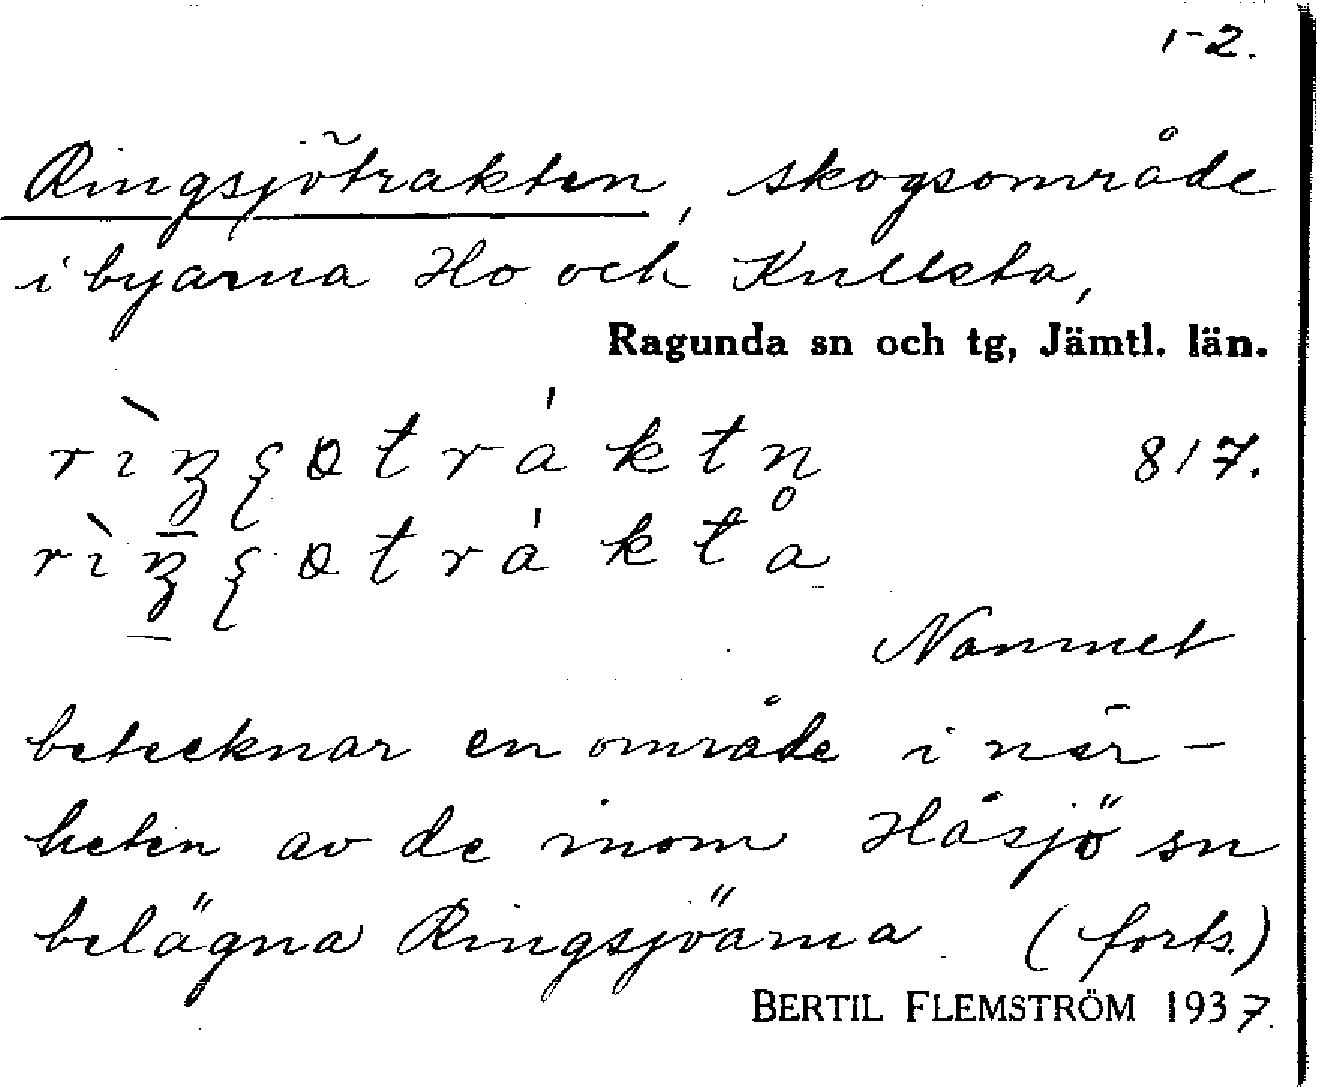 1-2.
Ringsjötrakten, skogsområde
i byarna Ho och Kullsta,
Ragunda sn och tg, Jämtl. län.
817.
Namnet
betecknar en område i när-
heten av de inom Håsjö sn
belägna Ringsjöarna (forts.)
BERTIL FLEMSTRÖM 1937.